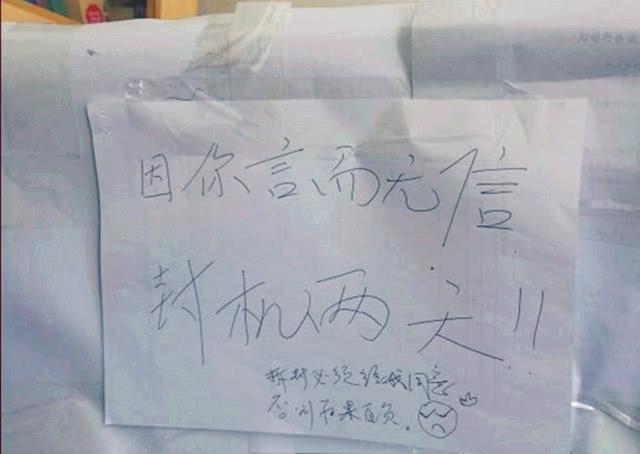 因你言而无信
封机两天!!
拆封必须经我同意
否则后果自负.